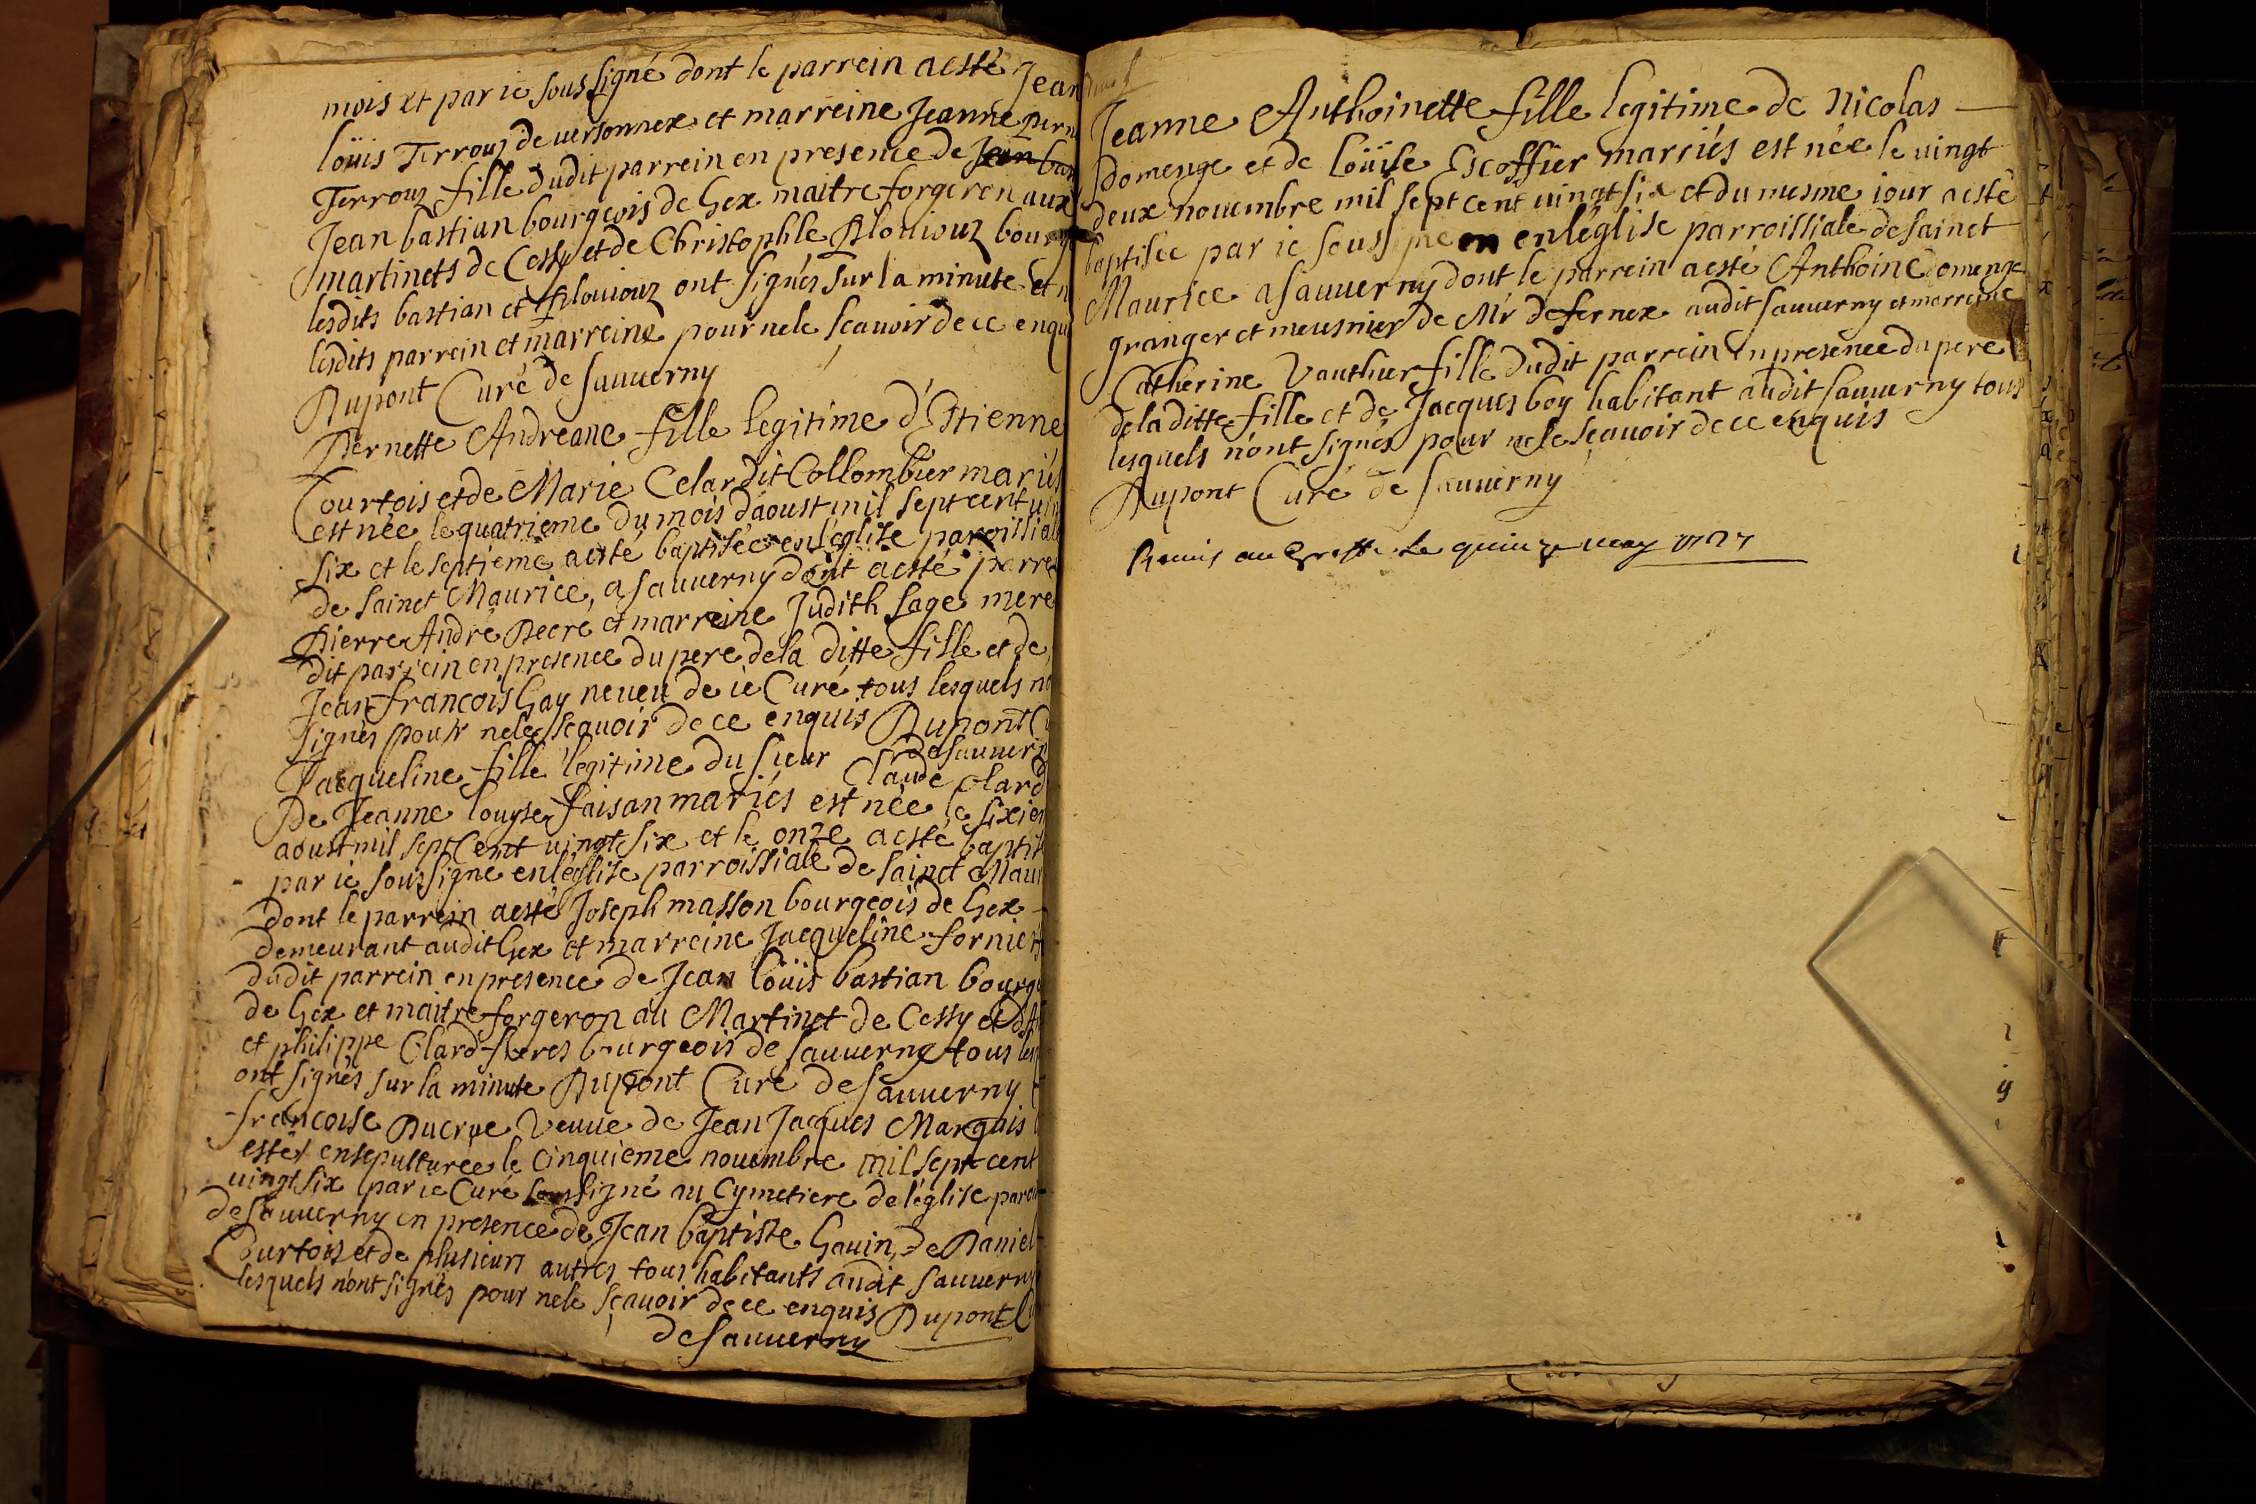 mois et par ie sous signé dont le parrein aesté Jean
loüis Terrouz de uersonnex et marreine Jeanne
Terrouz fille dudit parrein en presence de
Jean bastian bourgeois de Gex maitre forgeron aux
martinets de Cessy et de Christophle bourg
lesdits bastian et ont signés sur la minute et n
lesdits parrein et marreine pour ne le scauoir de ce enqu
Dupont Curé de sauuerny
Pernette Andreane fille legitime d'Estienne
Courtois et de Marie Celardit Collombier mariés
est née le quatrieme du mois daoust mil sept cent uin
six et le septieme aesté baptisée en leglise paroissiale
de sainct Maurice, a sauuerny dont aesté parre
Pierre André Decre et marreine Judith sage mere
dit parrein en presence du pere dela ditte fille et de
Jean francois Gay neueu de ie Curé tous lesquels no
signés pour nele scauoir de ce enquis Dupont Cu
de sauuern
Jacqueline fille legitime du sieur Claude Clard
De Jeanne louyse faisan mariés est née le sixiem
aoust mil sept Cent uingt six et le onze aesté baptis
par ie soussigné en leglise parroissiale de sainct Maur
dont le parrein aesté Joseph masson bourgeois de Gex
demeurant audit Gex et marreine Jacqueline fornier
dudit parrein en presence de Jean loüis bastian bourge
de Gex et maitre forgeron au Martinet de Cessy et
et philippe Clard freres bourgeois de sauuerny tous les
ont signés sur la minute Dupont Curé de sauuerny
francoise Ducrue Veuue de Jean Jacques Marquis
esté ensepulturée le cinquieme nouembre mil sept cent
uingt six par ie Curé soussigné au Cymetiere de léglise paroi
de sauuerny en presence de Jean baptiste Gauin, de Daniel
Courtois et de plusieurs autres tous habitants audit sauuerny
lesquels nont signés pour nele scauoir de ce enquis Dupont Cu
de sauuerny
Jeanne Anthoinette fille legitime de Nicolas
domenge et de loüise Escoffier mariés est née le uingt
deux nouembre mil sept cent uingt six et du mesme iour aesté
baptisée par ie soussigné en léglise parroissiale de sainct
Maurice a sauuerny dont le parrein aesté Anthoine domenge
granger et meusnier de Mr de fernex audit sauuerny et marreine
Catherine Vauthier fille dudit parrein en presence du pere
dela ditte fille et de Jacques boy habitant audit sauuerny tous
lesquels n'ont signés pour nele scauoir de ce enquis
Dupont Curé de sauuerny
Remis au Greffe le quinze may 1727